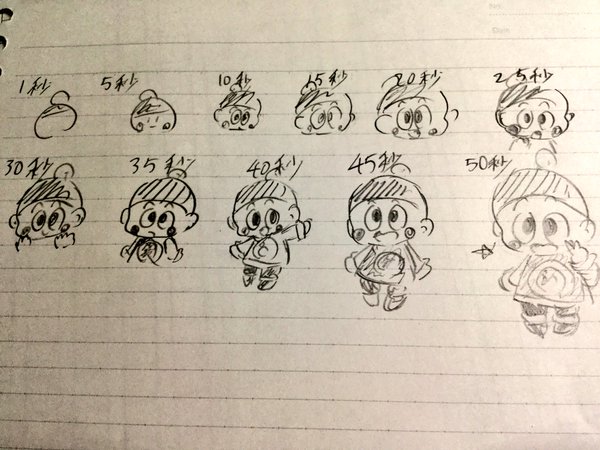 1秒 5秒 10秒 15秒 20秒 25秒
30秒 35秒 40秒 45秒 50秒